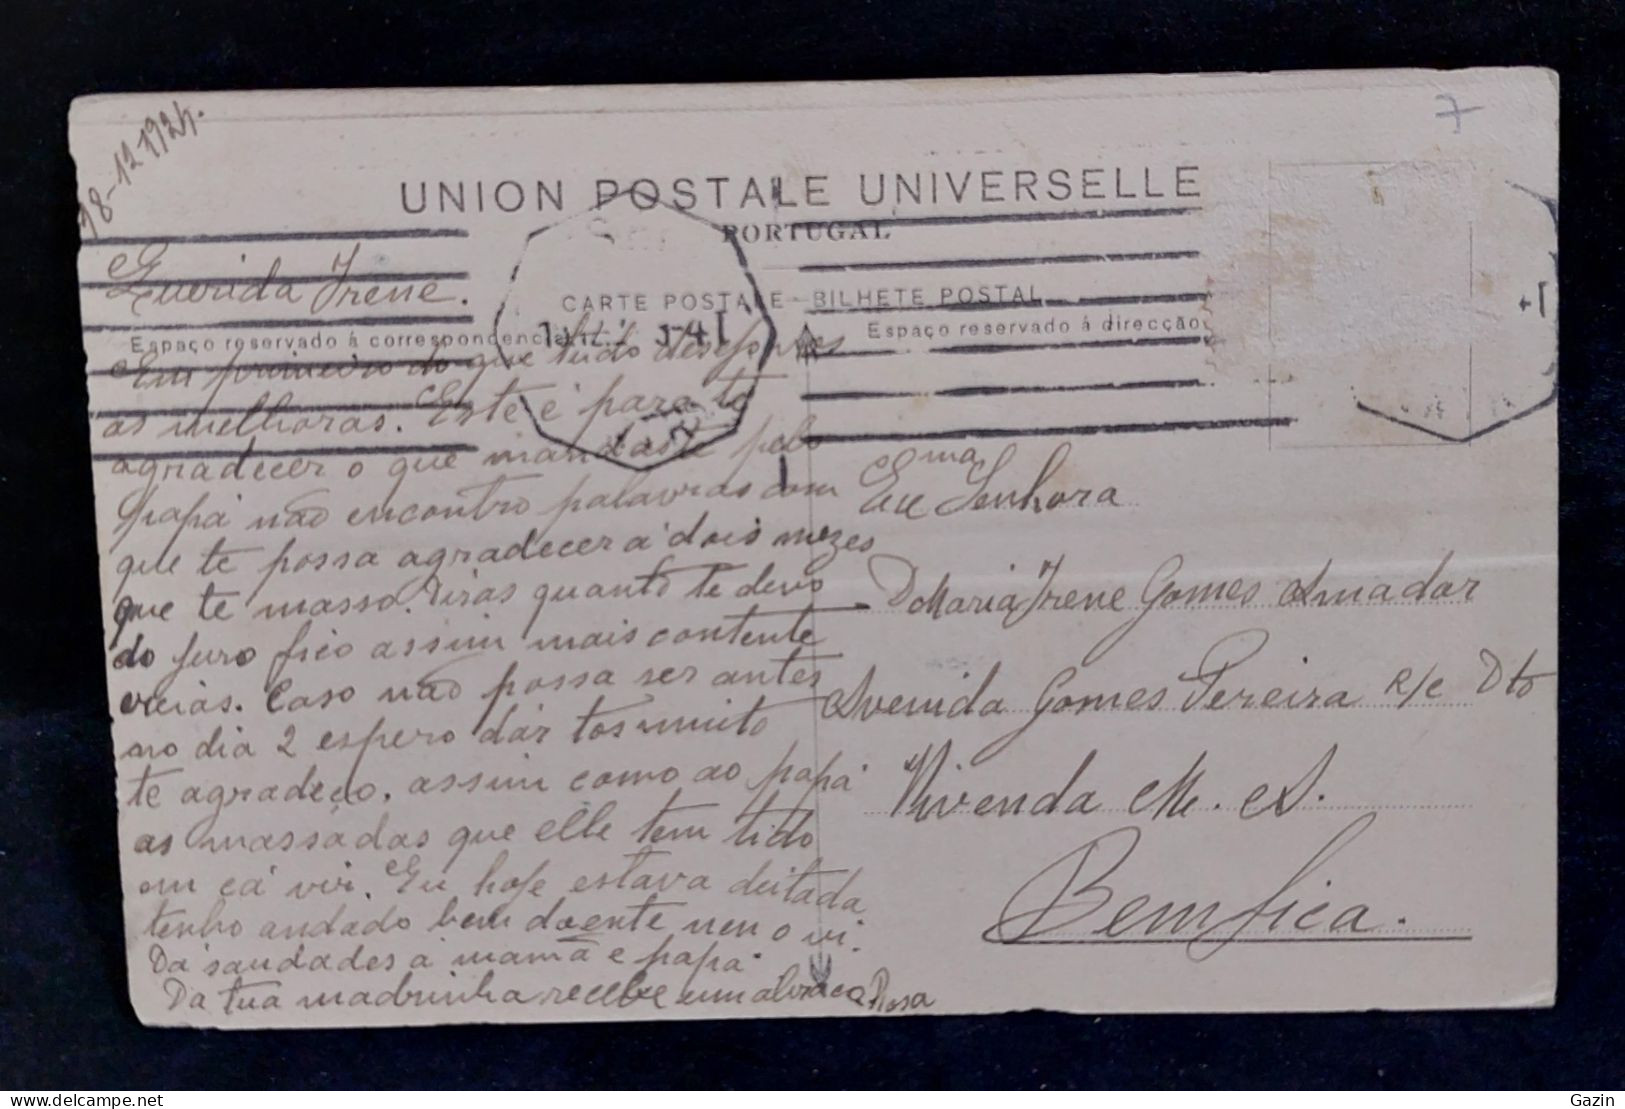 18-12 1924.
7
UNION POSTALE UNIVERSELLE
PORTUGAL
CARTE POSTALE - BILHETE POSTAL
Espaço reservado á correspondencia
Espaço reservado á direcção
Querida Irene.
Em primeiro do que tudo desejo
as melhoras. Este é para te
agradecer o que mandaste pelo
papá não encontro palavras com
que te possa agradecer á dois mezes
que te masso. Diras quanto te devo
do juro fico assim mais contente
veias. Caso não possa ser antes
no dia 2 espero dár tos muito
te agradeço, assim como ao papá
as massádas que elle tem tido
em cá vir. Eu hoje estava deitada
tenho andado bem doente nem o vi.
Dá saudades á mamã e papá.
Da tua madrinha recebe um abraço Rosa
Exma Senhora
D Maria Irene Gomes Amador
Avenida Gomes Pereira R/c Dto
Vivenda M. A.
Bemfica.
delcampe.net
Gazin